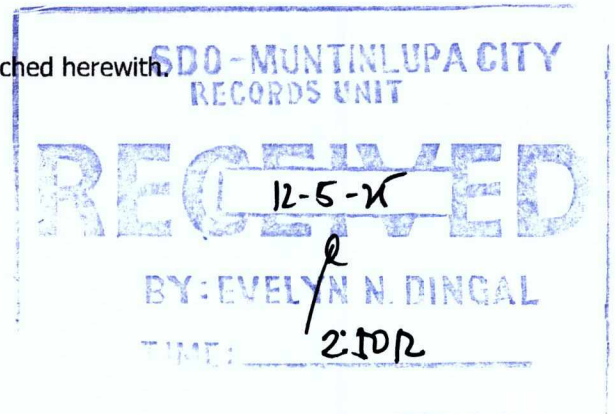 ched herewith.
SDO-MUNTINLUPA CITY
RECORDS UNIT
RECEIVED
12-5-25
BY: EVELYN N. DINGAL
TIME: